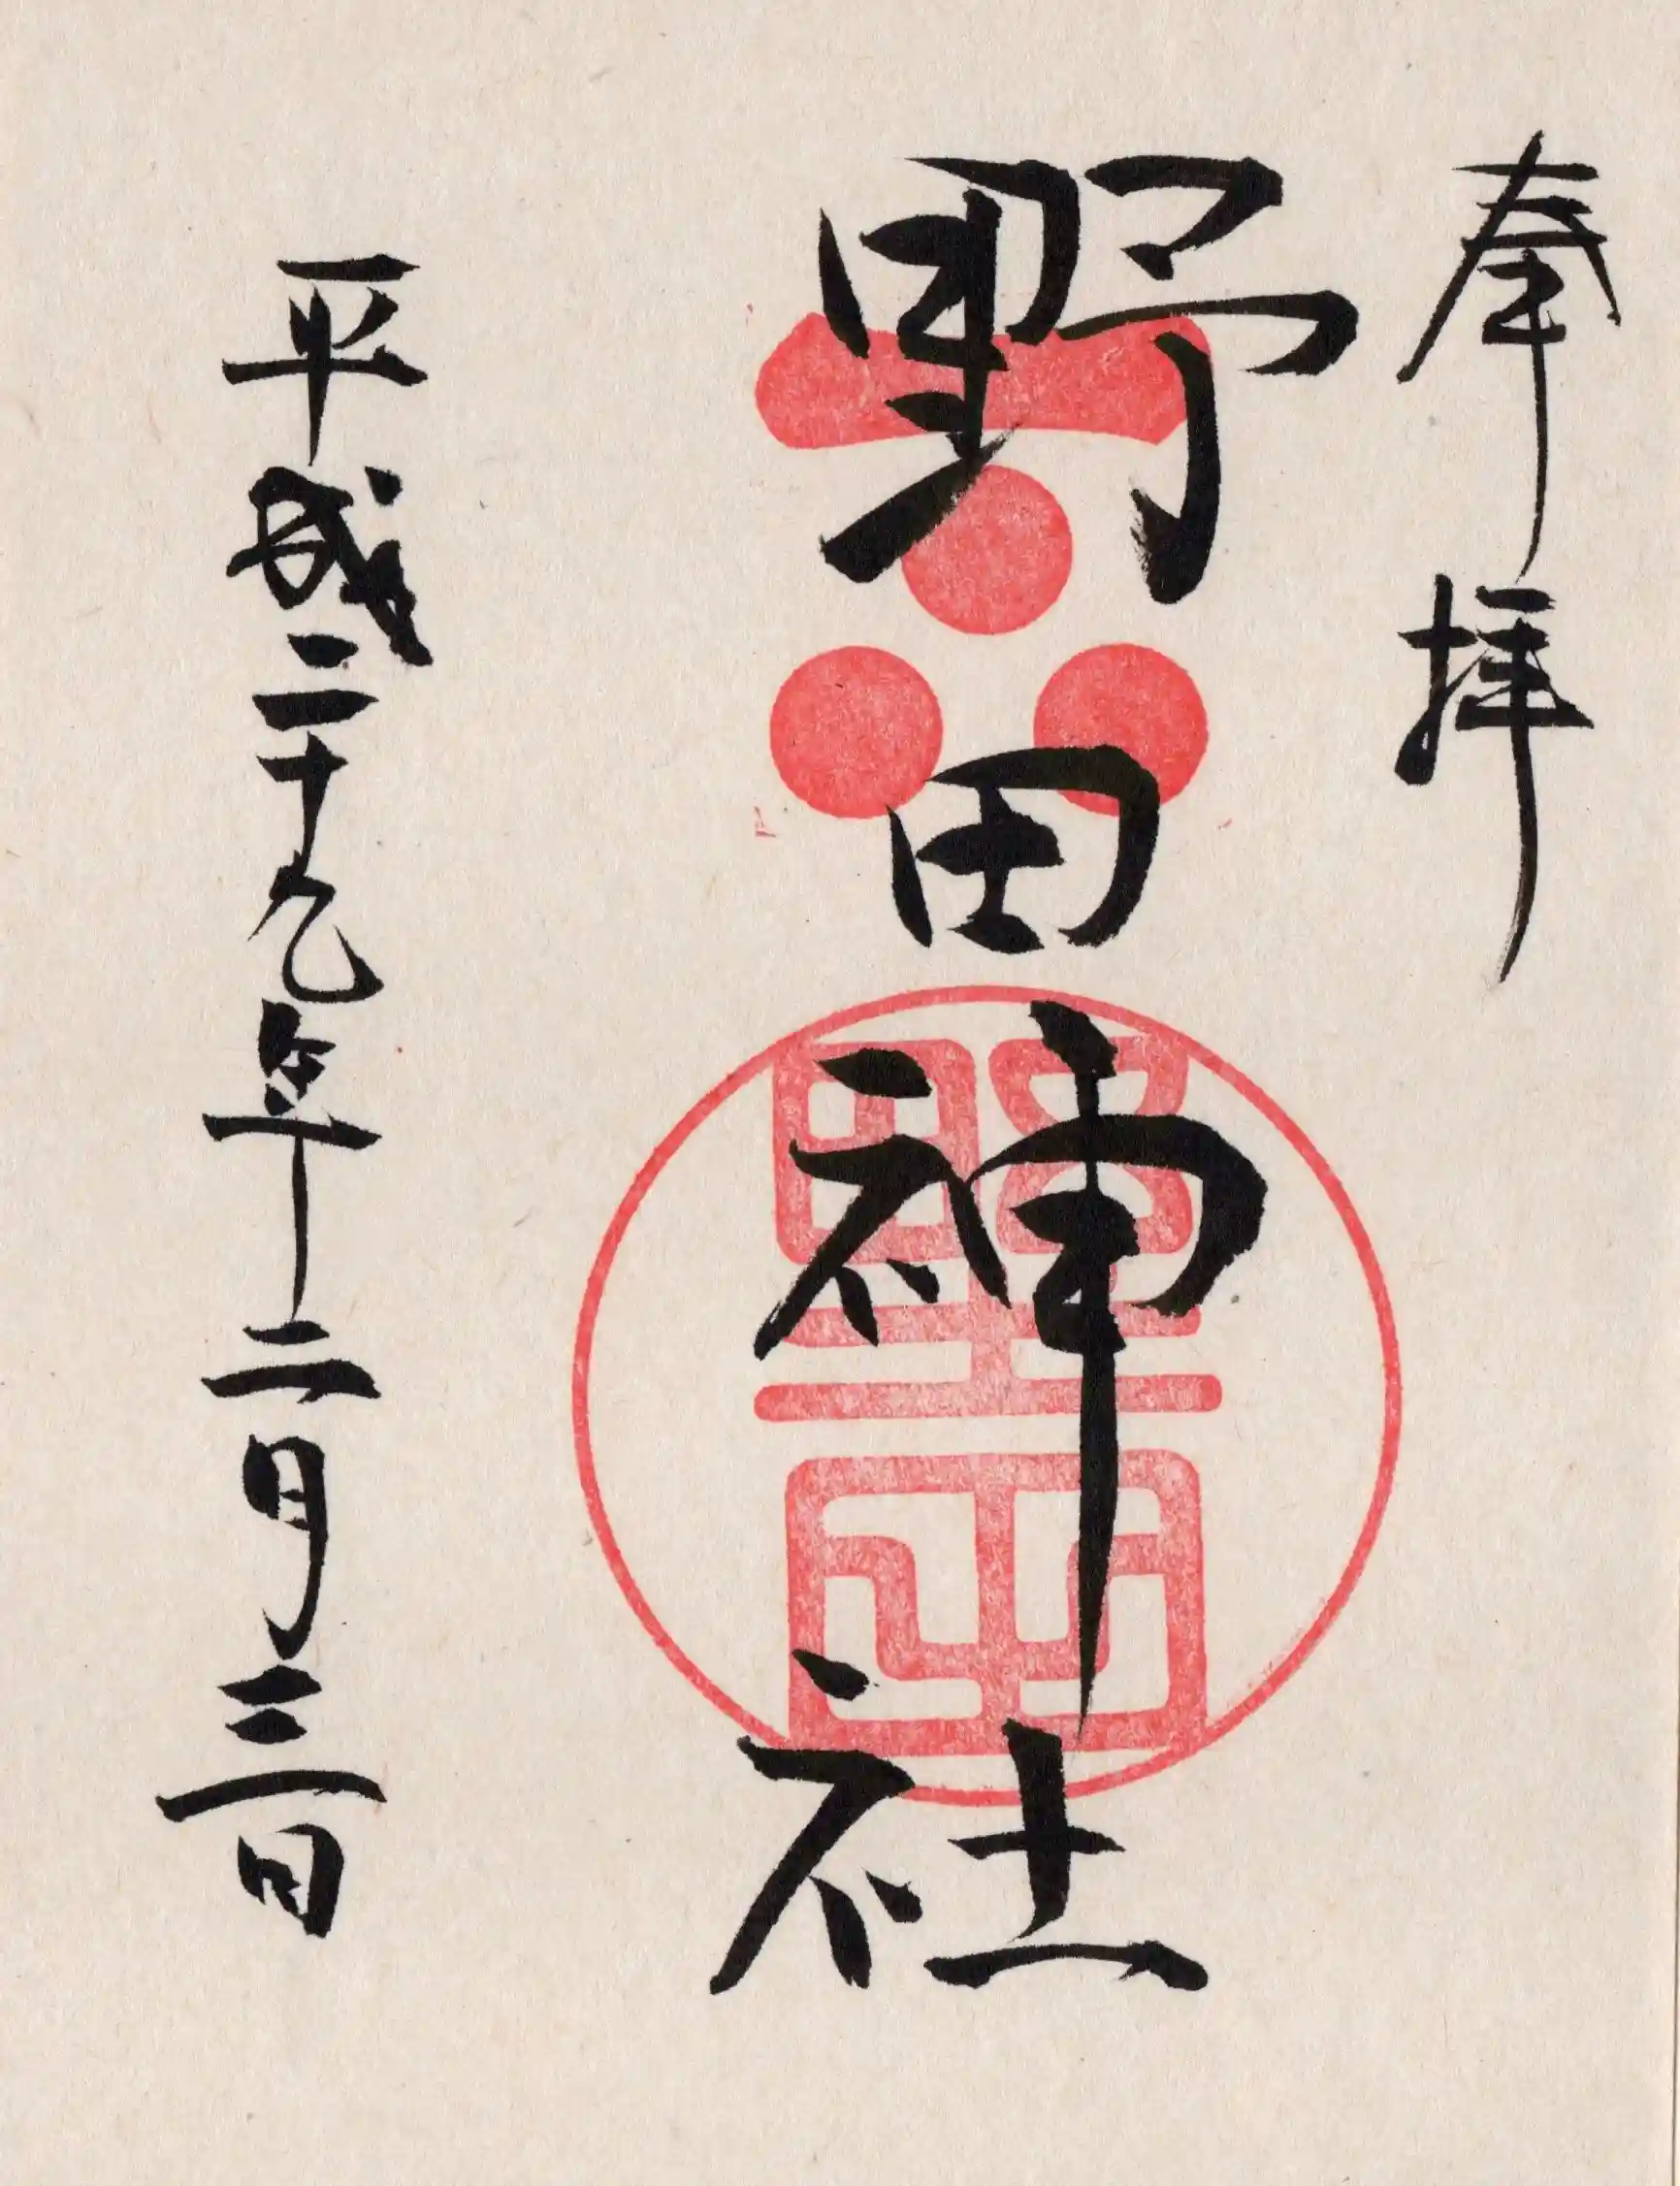 奉拝
野田神社
野田
平成二十九年二月三日